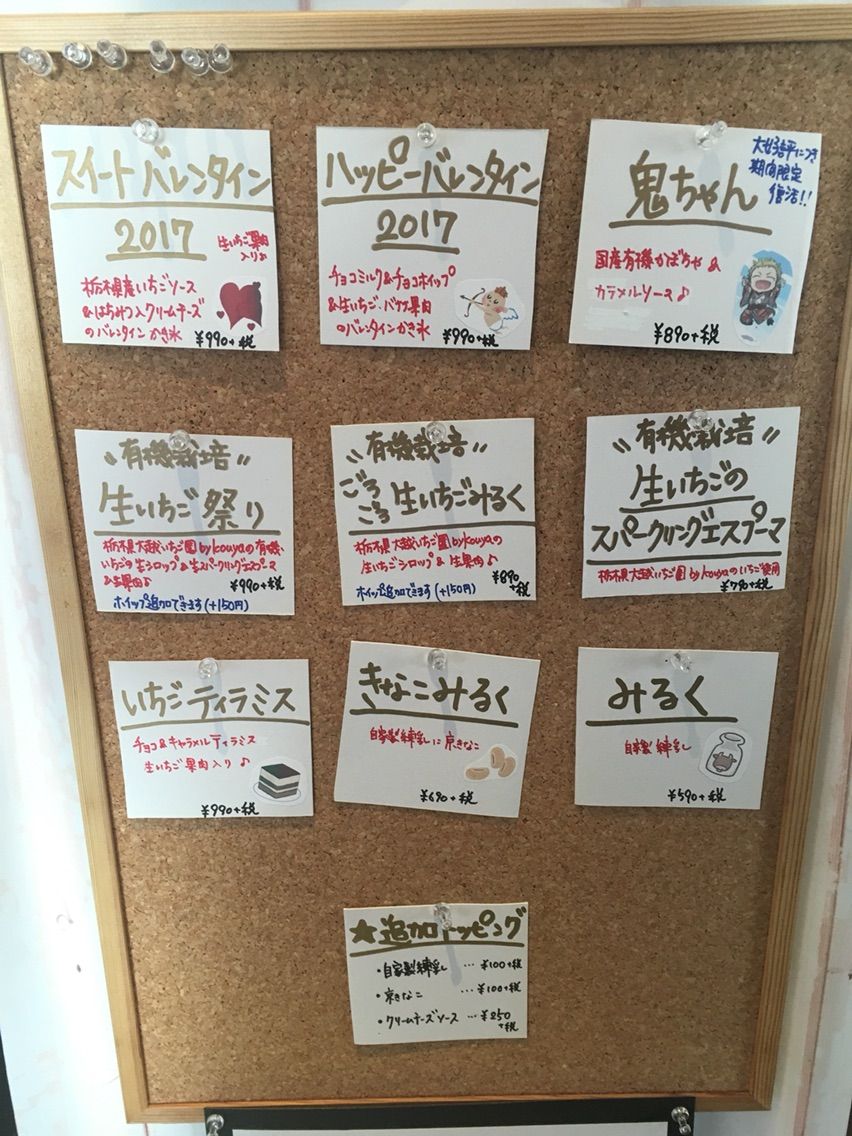 スイートバレンタイン
2017
生いちご果肉
入り♪
栃木県産いちごソース
&はちみつ入クリームチーズ
のバレンタインかき氷
¥990+税
ハッピーバレンタイン
2017
チョコミルク&チョコホイップ
&生いちご、バナナ果肉
のバレンタインかき氷
¥990+税
大好評につき
期間限定
復活!!
鬼ちゃん
国産有機かぼちゃ&
カラメルソース♪
¥890+税
〝有機栽培〟
生いちご祭り
栃木県大越いちご園by kouyaの有機
いちごの生シロップ&生スパークリングエスプーマ
&生果肉♪
¥990+税
ホイップ追加できます(+150円)
〝有機栽培〟
ごろごろ生いちごみるく
栃木県大越いちご園by kouyaの
生いちごシロップ&生果肉♪
¥890+税
ホイップ追加できます(+150円)
〝有機栽培〟
生いちごの
スパークリングエスプーマ
栃木県大越いちご園by kouyaのいちご使用
¥790+税
いちごティラミス
チョコ&キャラメルティラミス
生いちご果肉入り♪
¥990+税
きなこみるく
自家製練乳に京きなこ
¥690+税
みるく
自家製練乳
¥590+税
★追加トッピング
・自家製練乳…¥100+税
・京きなこ…¥100+税
・クリームチーズソース…¥250+税